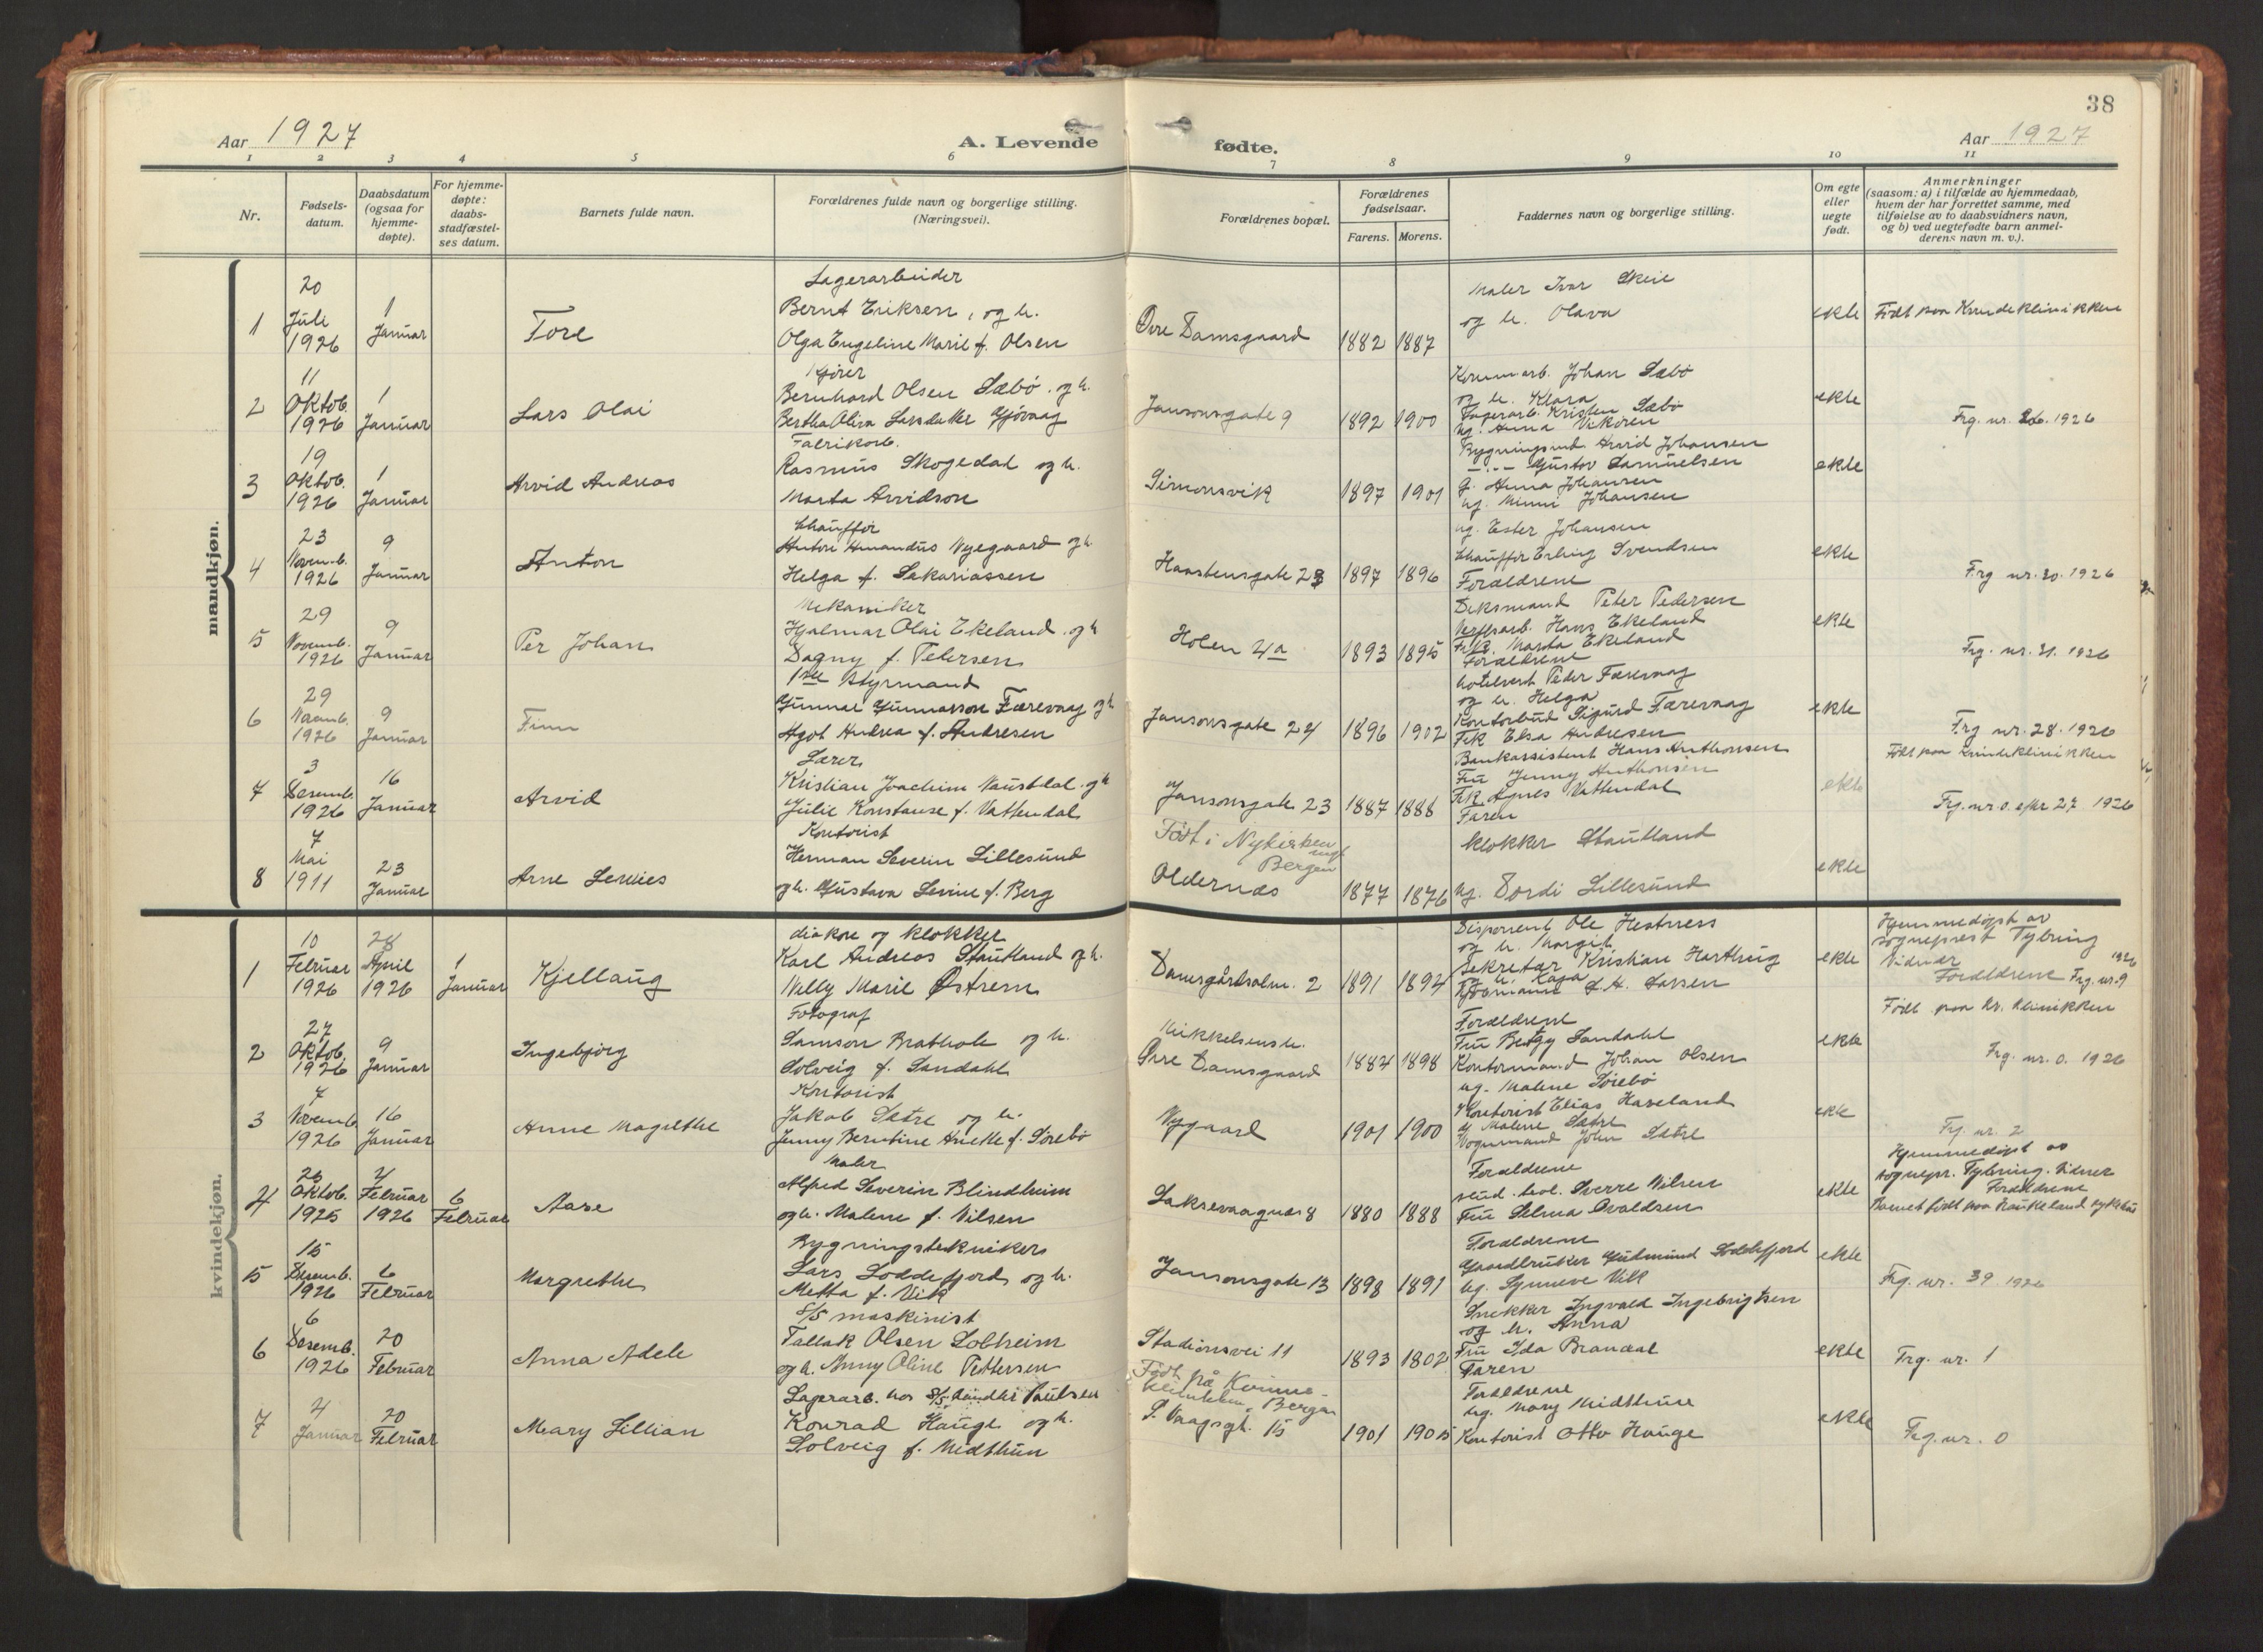 38
Aar 1927
A. Levende fødte.
Aar 1927
1 2 3 4 5 6 7 8 9 10 11
Nr.
Fødsels-
datum.
Daabsdatum
(ogsaa for
hjemme-
døpte).
For hjemme-
døpte:
daabs-
stadfæstel-
ses datum.
Barnets fulde navn.
Forældrenes fulde navn og borgerlige stilling.
(Næringsvei).
Forældrenes bopæl.
Forældrenes
fødselsaar.
Farens. Morens.
Faddernes navn og borgerlige stilling.
Om egte
eller
uegte
født.
Anmerkninger
(saasom: a) i tilfælde av hjemmedaab,
hvem der har forrettet samme, med
tilføielse av to daabsvidners navn,
og b) ved uegtefødte barn anmel-
derens navn m. v.).
mandkjøn.
1
20
Juli
1926
1
Januar
Tore
Lagerarbeider
Bernt Eriksen, og h.
Olga Engeline Marie f. Olsen
Øvre Damsgaard
1882 1887
Maler Ivar Skeie
og h. Olava
ekte
Født paa Kvindeklinikken
2
11
Oktob.
1926
1
Januar
Lars Olai
Kjører
Bernhard Olsen Sæbø. og h.
Bertha Oliva Larsdatter Gjövaag
Jansonsgate 9
1892 1900
Kommarb. Johan Sæbø
og h. Klara
Lagerarb. Kristen Sæbø
Ug. Anna Vikören
ekte
Frg. nr. 26. 1926
3
19
Oktob.
1926
1
Januar
Arvid Andreas
Fabrikarb.
Rasmus Skogedal og h.
Marta Arvidson
Simonsvik
1897 1901
Bygningsmd. Arvid Johansen
—"— Gustav Samuelsen
G. Anna Johansen
Ug. Minni Johansen
ekte
4
23
Novemb.
1926
9
Januar
Anton
Chauffør
Anton Amandus Nygaard og h.
Helga f. Sakariassen
Haastensgate 23
1897 1896
ug. Ester Johansen
Chauffør Erling Svendsen
Forældrene
ekte
Frg nr. 30. 1926
5
29
Novemb.
1926
9
Januar
Per Johan
Mekaniker
Hjalmar Olai Ekeland. og h
Dagny f. Petersen
Holen 4a
1893 1895
Deksmand Peter Pedersen
Verftsarb. Hans Ekeland
Frk. Marta Ekeland
Forældrene
ekte
Frg. nr. 31. 1926
6
29
Novemb.
1926
9
Januar
Finn
1ste Styrmand
Gunnar Gunnarson Færevaag og h
Agot Andrea f. Andresen
Jansonsgate 24
1896 1902
Hotelvert Peder Færevaag
og h. Helga
Kontorbud Sigurd Færevaag
Frk Elsa Andresen
ekte
Frg nr. 28. 1926
7
3
Desemb.
1926
16
Januar
Arvid
Lærer
Kristian Joachim Naustdal. og h
Julie Konstanse f. Vattendal
Jansonsgate 23
1887 1888
Bankassistent Hans Anthonsen
Fru Jenny Anthonsen
Frk. Agnes Vattendal
Faren
ekte
Født paa Kvindeklinikken
Frg. nr. 0. efter 27 1926
8
7
Mai
1911
23
Januar
Arne
Kontorist
Herman Severin Lillesund
og h. Gustava Sevine f. Berg
Født i Nykirken
Bergen
Oldernes
1877 1876
Klokker Stautland
Ug. Dordi Lillesund
ekte
kvindekjøn.
1
10
Februar
1926
28
April
1926
1
Januar
Kjellaug
diakon og klokker
Karl Andreas Stautland og h.
Nelly Marie Østrem
Damsgårdsalm. 2
1891 1894
Disponent Ole Hestnes
og h. Margit
Sekretær Kristian Harthvig
og h. Kaja
L. A. Larsen
ekte
Hjemmedøpt av
sogneprest Tybring
Vidner
Forældrene Frg. nr. 9 1926
2
27
Oktob.
1926
9
Januar
Ingebjörg
Fotograf
Samson Bratholm og h.
Solveig f. Sandahl
Mikkelsensh.
Øvre Damsgaard
1884 1898
Forældrene
Fru Betsy Sandahl
Kontormand Johan Olsen
ekte
Født paa kv. klinikken
Frg. nr. 0. 1926
3
7
Novemb.
1926
16
Januar
Anne Magrethe
Kontorist
Jakob Sætre og h.
Jenny Berntine Anette f. Sörebø
Nygaard
1901 1900
ug. Malene Sörebø
Kontorist Elias Haveland
G Malene Sætre
Vognmand John Sætre
ekte
Frg. nr. 2
4
25
Oktob.
1925
4
Februar
1926
6
Februar
Aase
Maler
Alfred Severin Blindheim
og h. Malene f. Nilsen
Laksevaagnes 8
1880 1888
Forældrene
stud. teol. Sverre Nilsen
Fru Selma Evaldsen
ekte
Hjemmedøpt av
sognepr. Tybring. Vidner
Forældrene
Barnet født paa Haukeland sykehus
5
15
Desemb.
1926
6
Februar
Margrethe
Bygningstekniker
Lars Loddefjord og h.
Metta f. Vik
Jansonsgate 13
1898 1891
Forældrene
Gaardbruker Gudmund Loddefjord
Ug. Synneve Vik
ekte
Frg. nr. 39. 1926
6
6
Desemb.
1926
20
Februar
Anna Adele
S/S maskinist
Tallak Olsen Solheim
og h. Anny Oline Pettersen
Stadionsvei 11
1893 1802
Snekker Ingvald Ingebrigtsen
og h. Anna
Fru Ida Brandal
Faren
ekte
Frg. nr. 1
7
4
Januar
20
Februar
Mary Lillian
Lagerarb. hos Paulsen
Konrad Hauge og h.
Solveig f. Midthun
Født på Kvinne-
klinikken, Bergen
S. Vaagsgt. 15
1901 1905
Forældrene
Ug. Mary Midthun
Kontorist Otto Hauge
ekte
Frg. nr. 0